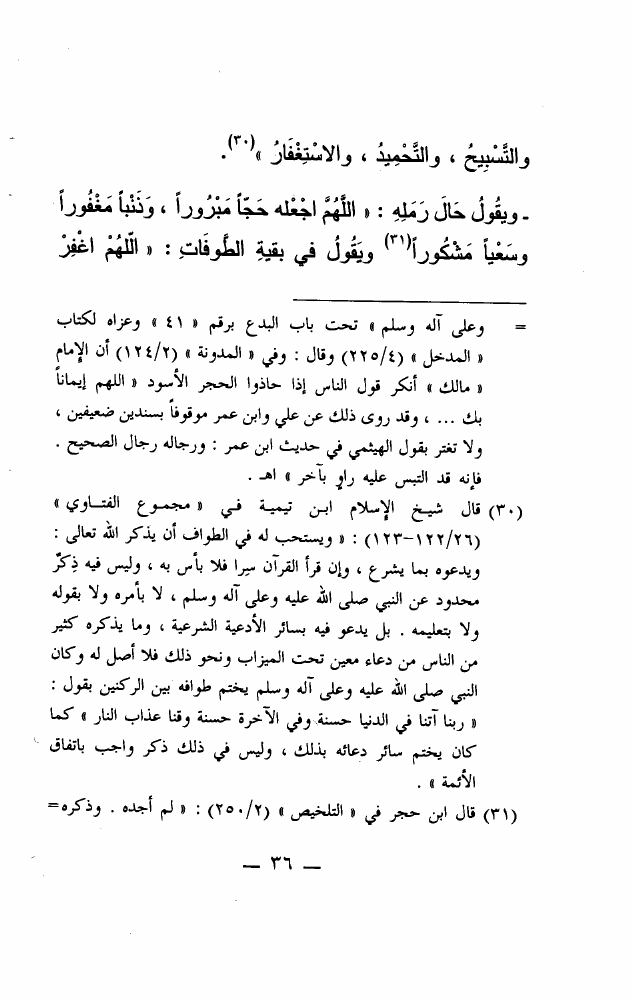 والتَّسْبِيحُ ، والتَّحْمِيدُ ، والاسْتِغْفَارُ »(٣٠).
- ويقُولُ حَالَ رَمَلِهِ : « اللَّهُمَّ اجْعْله حَجّاً مَبْرُوراً ، وَذَنْباً مَغْفُوراً
وسَعْياً مَشْكُوراً(٣١) ويَقُولُ في بقيةِ الطَّوفَاتِ : « اللّهُمْ اغْفِرْ
= وعلى آله وسلم » تحت باب البدع برقم « ٤١ » وعزاه لكتاب
« المدخل » (٢٢٥/٤) وقال : وفي « المدونة » (١٢٤/٢) أن الإمام
« مالك » أنكر قول الناس إذا حاذوا الحجر الأسود « اللهم إيماناً
بك ... ، وقد روى ذلك عن علي وابن عمر موقوفاً بسندين ضعيفين ،
ولا تغتر بقول الهيثمي في حديث ابن عمر : ورجاله رجال الصحيح .
فإنه قد التبس عليه راوٍ بآخر » اهـ .
(٣٠) قال شيخ الإسلام ابن تيمية في « مجموع الفتاوي »
(١٢٢/٢٦-١٢٣) : « ويستحب له في الطواف أن يذكر الله تعالى :
ويدعوه بما يشرع ، وإن قرأ القرآن سِرا فلا بأس به ، وليس فيه ذِكرٌ
محدود عن النبي صلى الله عليه وعلى آله وسلم ، لا بأمره ولا بقوله
ولا بتعليمه . بل يدعو فيه بسائر الأدعية الشرعية ، وما يذكره كثير
من الناس من دعاء معين تحت الميزاب ونحو ذلك فلا أصل له وكان
النبي صلى الله عليه وعلى آله وسلم يختم طوافه بين الركنين بقول :
« ربنا آتنا في الدنيا حسنة وفي الآخرة حسنة وقنا عذاب النار » كما
كان يختم سائر دعائه بذلك ، وليس في ذلك ذكر واجب باتفاق
الأئمة » .
(٣١) قال ابن حجر في « التلخيص » (٢٥٠/٢) : « لم أجده . وذكره=
— ٣٦ —